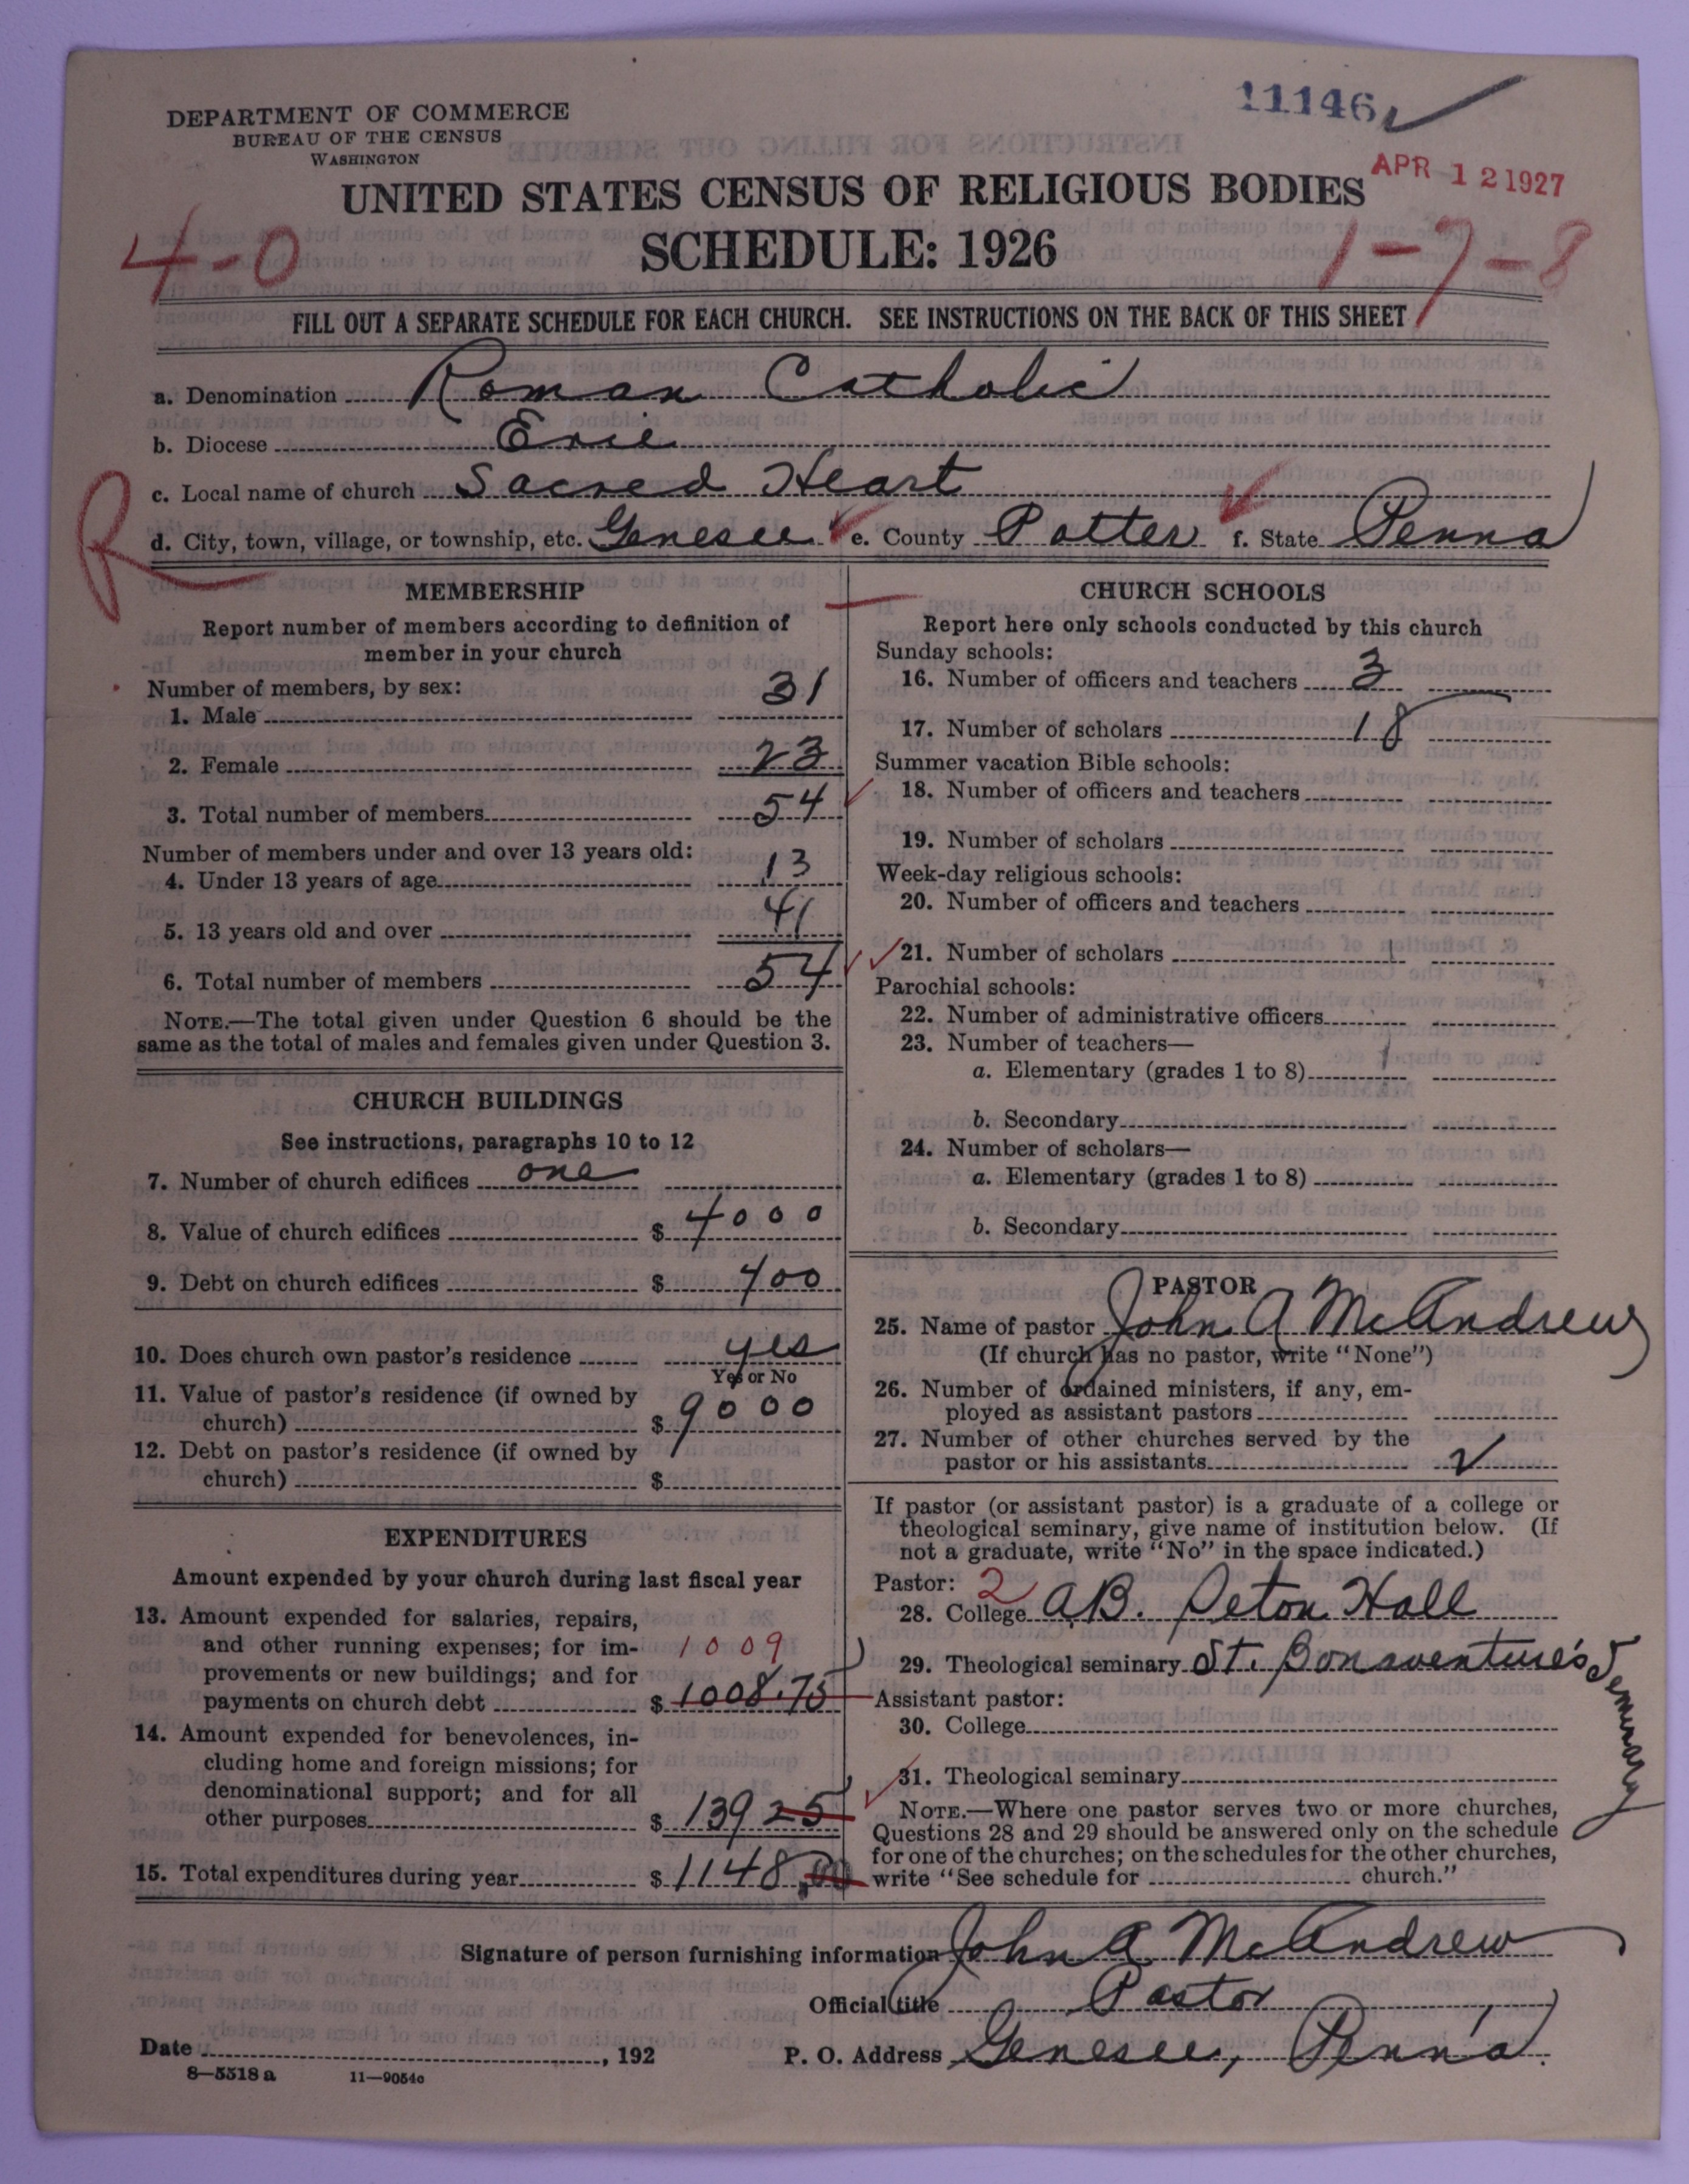 11146
DEPARTMENT OF COMMERCE
BUREAU OF THE CENSUS
WASHINGTON
APR 12 1927
UNITED STATES CENSUS OF RELIGIOUS BODIES
4-0
SCHEDULE: 1926
1-7-8
FILL OUT A SEPARATE SCHEDULE FOR EACH CHURCH. SEE INSTRUCTIONS ON THE BACK OF THIS SHEET
a. Denomination Roman Catholic
b. Diocese Erie
c. Local name of church Sacred Heart
R
d. City, town, village, or township, etc. Genesee e. County Potter f. State Penna
MEMBERSHIP
Report number of members according to definition of
member in your church
Number of members, by sex:
1. Male 31
2. Female 23
3. Total number of members 54
Number of members under and over 13 years old:
4. Under 13 years of age 13
5. 13 years old and over 41
6. Total number of members 54
NOTE.—The total given under Question 6 should be the
same as the total of males and females given under Question 3.
CHURCH BUILDINGS
See instructions, paragraphs 10 to 12
7. Number of church edifices one
8. Value of church edifices $ 4000
9. Debt on church edifices $ 400
10. Does church own pastor's residence yes
Yes or No
11. Value of pastor's residence (if owned by
church) $ 9000
12. Debt on pastor's residence (if owned by
church) $
EXPENDITURES
Amount expended by your church during last fiscal year
13. Amount expended for salaries, repairs,
and other running expenses; for im- 1009
provements or new buildings; and for
payments on church debt $ 1008.75
14. Amount expended for benevolences, in-
cluding home and foreign missions; for
denominational support; and for all
other purposes $ 139 25
15. Total expenditures during year $ 1148.00
CHURCH SCHOOLS
Report here only schools conducted by this church
Sunday schools:
16. Number of officers and teachers 3
17. Number of scholars 18
Summer vacation Bible schools:
18. Number of officers and teachers
19. Number of scholars
Week-day religious schools:
20. Number of officers and teachers
21. Number of scholars
Parochial schools:
22. Number of administrative officers
23. Number of teachers—
a. Elementary (grades 1 to 8)
b. Secondary
24. Number of scholars—
a. Elementary (grades 1 to 8)
b. Secondary
PASTOR
25. Name of pastor John A McAndrew
(If church has no pastor, write "None")
26. Number of ordained ministers, if any, em-
ployed as assistant pastors
27. Number of other churches served by the
pastor or his assistants 2
If pastor (or assistant pastor) is a graduate of a college or
theological seminary, give name of institution below. (If
not a graduate, write "No" in the space indicated.)
Pastor: 2
28. College AB. Seton Hall
29. Theological seminary St. Bonaventure's Seminary
Assistant pastor:
30. College
31. Theological seminary
NOTE.—Where one pastor serves two or more churches,
Questions 28 and 29 should be answered only on the schedule
for one of the churches; on the schedules for the other churches,
write "See schedule for church."
Signature of person furnishing information John A McAndrew
Official title Pastor
Date , 192
P. O. Address Genesee, Penn'a.
8—5518 a 11—9054c